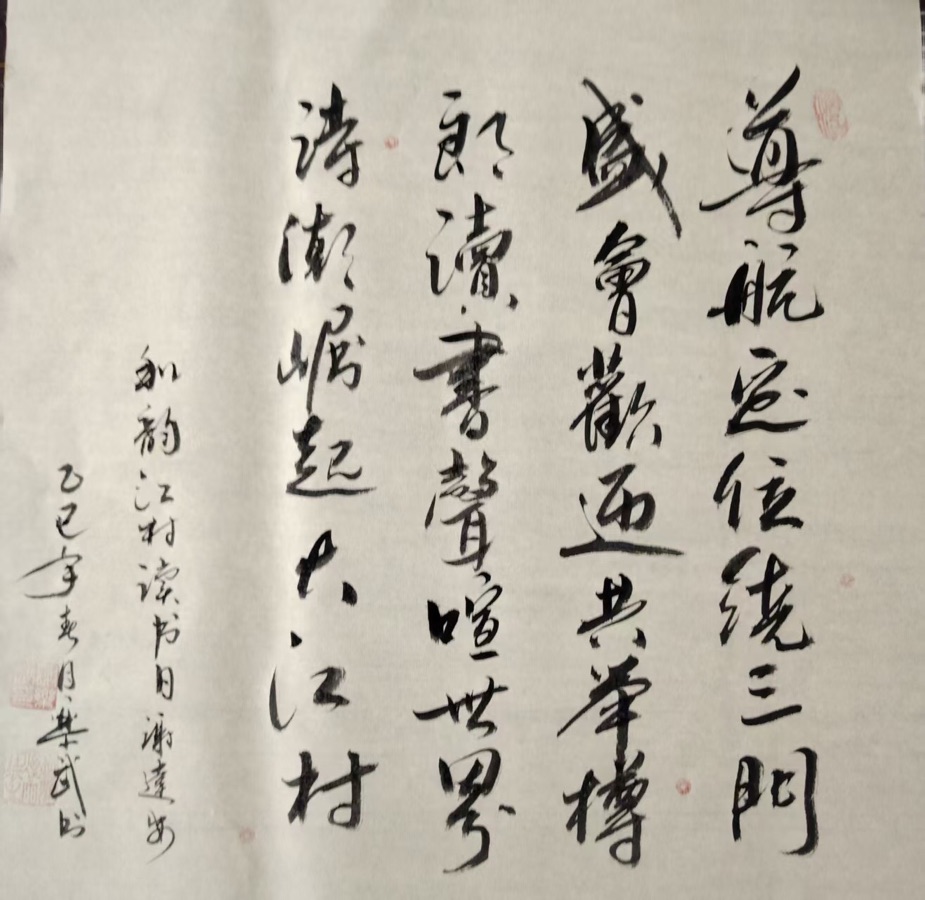 尊航定位繞三門
盛會歡迎共举樽
郎讀書聲喧世界
詩潮崛起大江村
和韵江村读书日谢達安
乙巳年春月樂武书